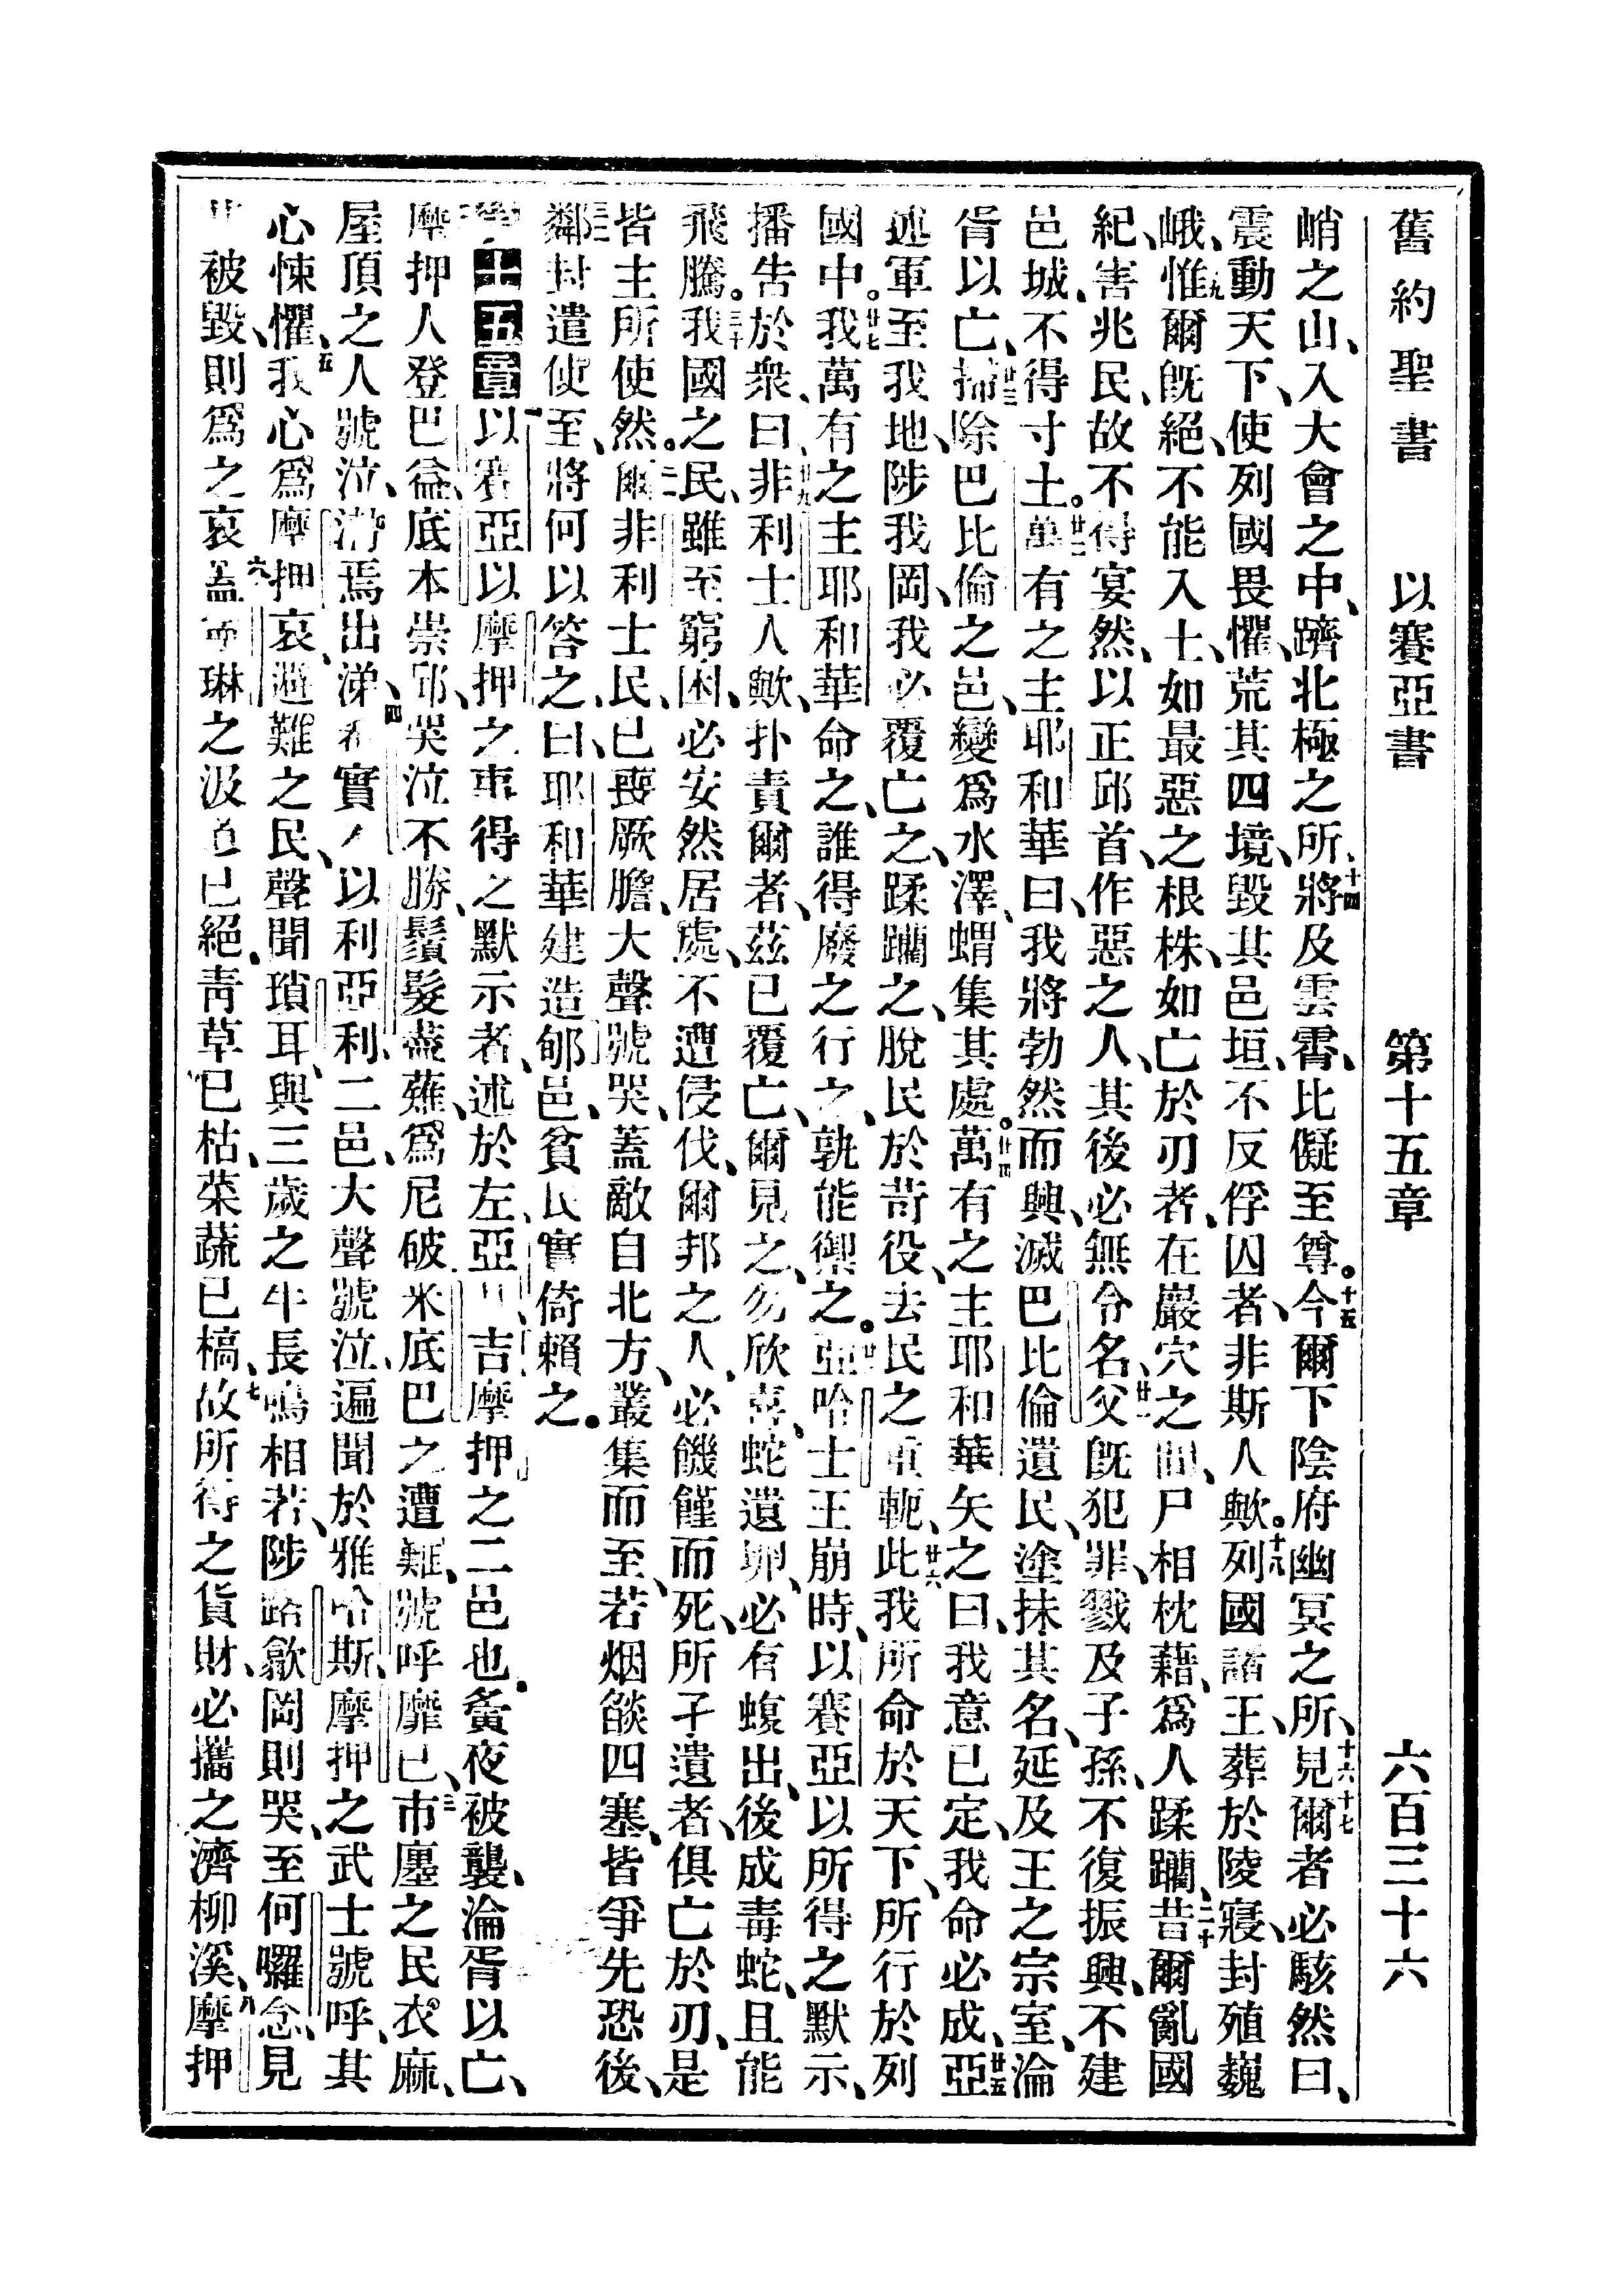 舊約聖書 以賽亞書 第十五章 六百三十六
峭之山、入大會之中、躋北極之所、十四將及雲霄、比儗至尊。十五今爾下陰府幽冥之所、十六見爾者必駭然曰、
震動天下、十七使列國畏懼、荒其四境、毀其邑垣、不反俘囚者、非斯人歟。十八列國諸王、葬於陵寢、封殖巍
峨、十九惟爾旣絕、不能入土、如最惡之根株、如亡於刃者、在巖穴之間、尸相枕藉、爲人蹂躪、二十昔爾亂國
紀、害兆民、故不得宴然、以正邱首、作惡之人、其後必無令名、廿一父旣犯罪、戮及子孫、不復振興、不建
邑城、不得寸土。廿二萬有之主耶和華曰、我將勃然而興、滅巴比倫遺民、塗抹其名、延及王之宗室、淪
胥以亡、廿三掃除巴比倫之邑、變爲水澤、蝟集其處。廿四萬有之主耶和華矢之曰、我意已定、我命必成、廿五亞
述軍至我地、陟我岡、我必覆亡之、蹂躪之、脫民於苛役、去民之重軛、廿六此我所命於天下、所行於列
國中。廿七我萬有之主耶和華命之、誰得廢之、行之、孰能禦之。廿八亞哈士王崩時、以賽亞以所得之默示、
播告於衆、曰、廿九非利士人歟、扑責爾者、茲已覆亡、爾見之勿欣喜、蛇遺卵、必有蝮出、後成毒蛇、且能
飛騰。三十我國之民、雖至窮困、必安然居處、不遭侵伐、爾邦之人、必饑饉而死、所孑遺者、俱亡於刃、是
皆主所使然。爾非利士民、已喪厥膽、大聲號哭、蓋敵自北方、叢集而至、若烟燄四塞、皆爭先恐後、
鄰封遣使至、將何以答之、曰、耶和華建造郇邑、貧民實倚賴之。
第十五章 以賽亞以摩押之事、得之默示者、述於左、亞 吉、摩押之二邑也、夤夜被襲、淪胥以亡、
摩押人登巴益、底本崇邱、哭泣不勝、鬚髮盡薙、爲尼破米底巴之遭難、號呼靡已、三市廛之民、衣麻、
屋頂之人、號泣、潸焉出涕、四希實 以利亞利、二邑、大聲號泣、遍聞於雅哈斯、摩押之武士號呼、其
心悚懼、五我心爲摩押哀、避難之民、聲聞瑣耳、與三歲之牛長鳴相若、陟路歙岡則哭、至何囉念、見
被毀、則爲之哀、六蓋 琳之汲道已絕、靑草已枯、菜蔬已槁、七故所得之貨財、必攜之濟柳溪、八摩押